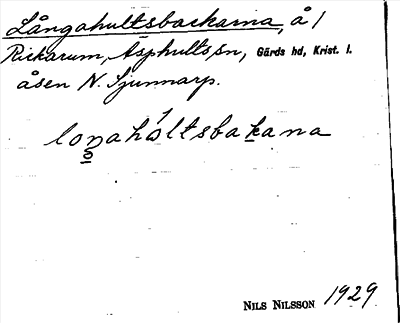 Långahultsbackarna, å /
Rickarum, Äsphults sn, Gärds hd, Krist. l.
åsen N. Sjunnarp.
loŋahòltsbakana
NILS NILSSON 1929